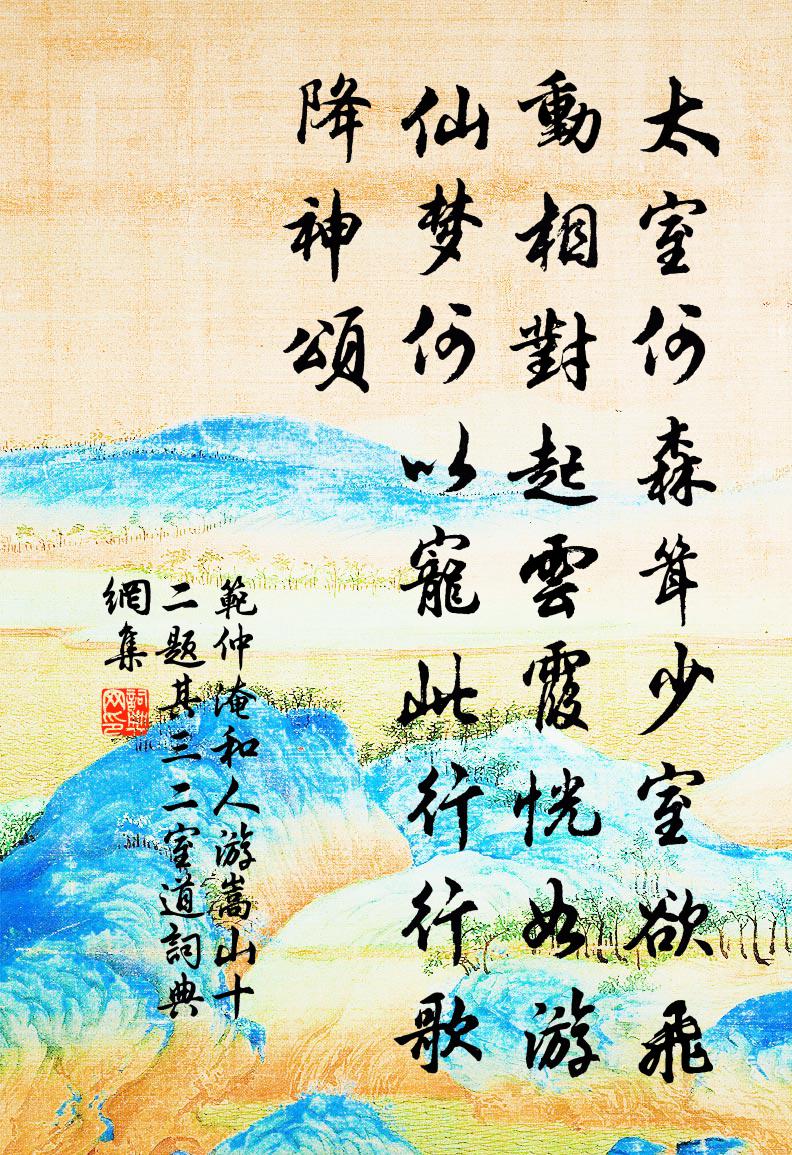 太室何森耸少室欲飛
動相對起雲霞恍如游
仙梦何以寵此行行歌
降神頌
範仲淹和人游嵩山十
二题其三二室道詞典
網集